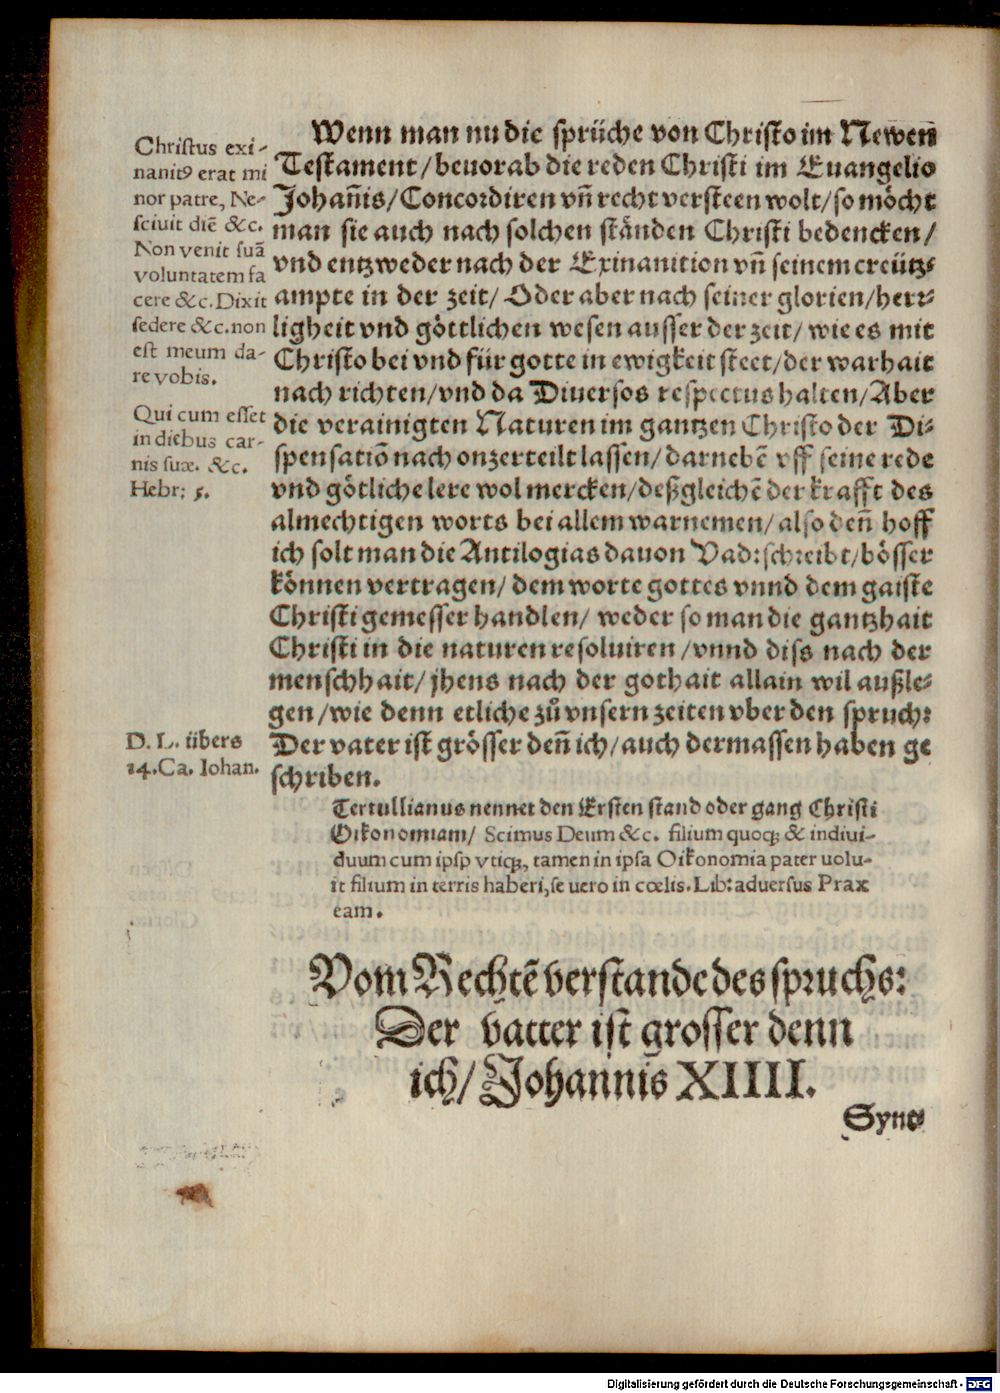 Christus exi-
nanitꝰ erat mi
nor patre, Ne-
sciuit diē &c.
Non venit suā
voluntatem fa
cere &c. Dixit
sedere &c. non
est meum da-
re vobis.
Qui cum esset
in diebus car-
nis suæ. &c.
Hebr: 5.
Wenn man nu die sprüche von Christo im Newen
Testament/ beuorab die reden Christi im Euangelio
Johañis/ Concordiren vñ recht versteen wolt/ so möcht
man sie auch nach solchen ständen Christi bedencken/
vnd entzweder nach der Exinanition vñ seinem creütz-
ampte in der zeit/ Oder aber nach seiner glorien/ herr-
ligheit vnd göttlichen wesen ausser der zeit/ wie es mit
Christo bei vnd für gotte in ewigkeit steet/ der warhait
nach richten/ vnd da Diuersos respectus halten/ Aber
die verainigten Naturen im gantzen Christo der Di-
spensatiō nach onzerteilt lassen/ darnebē vff seine rede
vnd götliche lere wol mercken/ deßgleichē der krafft des
almechtigen worts bei allem warnemen/ also deñ hoff
ich solt man die Antilogias dauon Vad: schreibt/ bösser
können vertragen/ dem worte gottes vnnd dem gaiste
Christi gemesser handlen/ weder so man die gantzhait
Christi in die naturen resoluiren/ vnnd diss nach der
menschhait/ jhens nach der gothait allain wil außle-
gen/ wie denn etliche zů vnsern zeiten vber den spruch:
Der vater ist grösser deñ ich/ auch dermassen haben ge
schriben.
D. L. übers
14. Ca. Iohan.
Tertullianus nennet den Ersten stand oder gang Christi
Oikonomiam/ Scimus Deum &c. filium quoqꝫ & indiui-
duum cum ipsp vtiqꝫ, tamen in ipsa Oikonomia pater uolu-
it filium in terris haberi, se uero in cœlis. Lib: aduersus Prax
eam.
Vom Rechtē verstande des spruchs:
Der vatter ist grosser denn
ich/ Johannis XIIII.
Syne
Digitalisierung gefördert durch die Deutsche Forschungsgemeinschaft - DFG